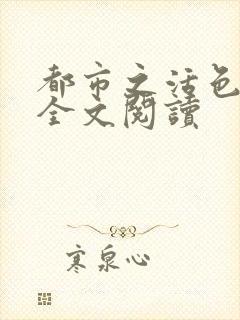 都市之活色
全文閱讀
寒泉心